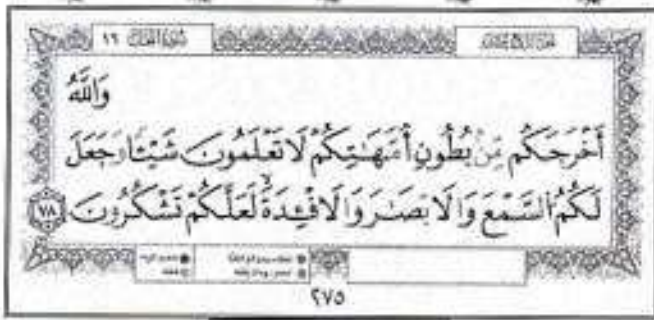 سُورَةُ النَّحْل ١٦
وَاللَّهُ
أَخْرَجَكُم مِّنۢ بُطُونِ أُمَّهَـٰتِكُمْ لَا تَعْلَمُونَ شَيْـًٔا وَجَعَلَ
لَكُمُ السَّمْعَ وَالْأَبْصَـٰرَ وَالْأَفْـِٔدَةَ ۙ لَعَلَّكُمْ تَشْكُرُونَ ٧٨
٢٧٥